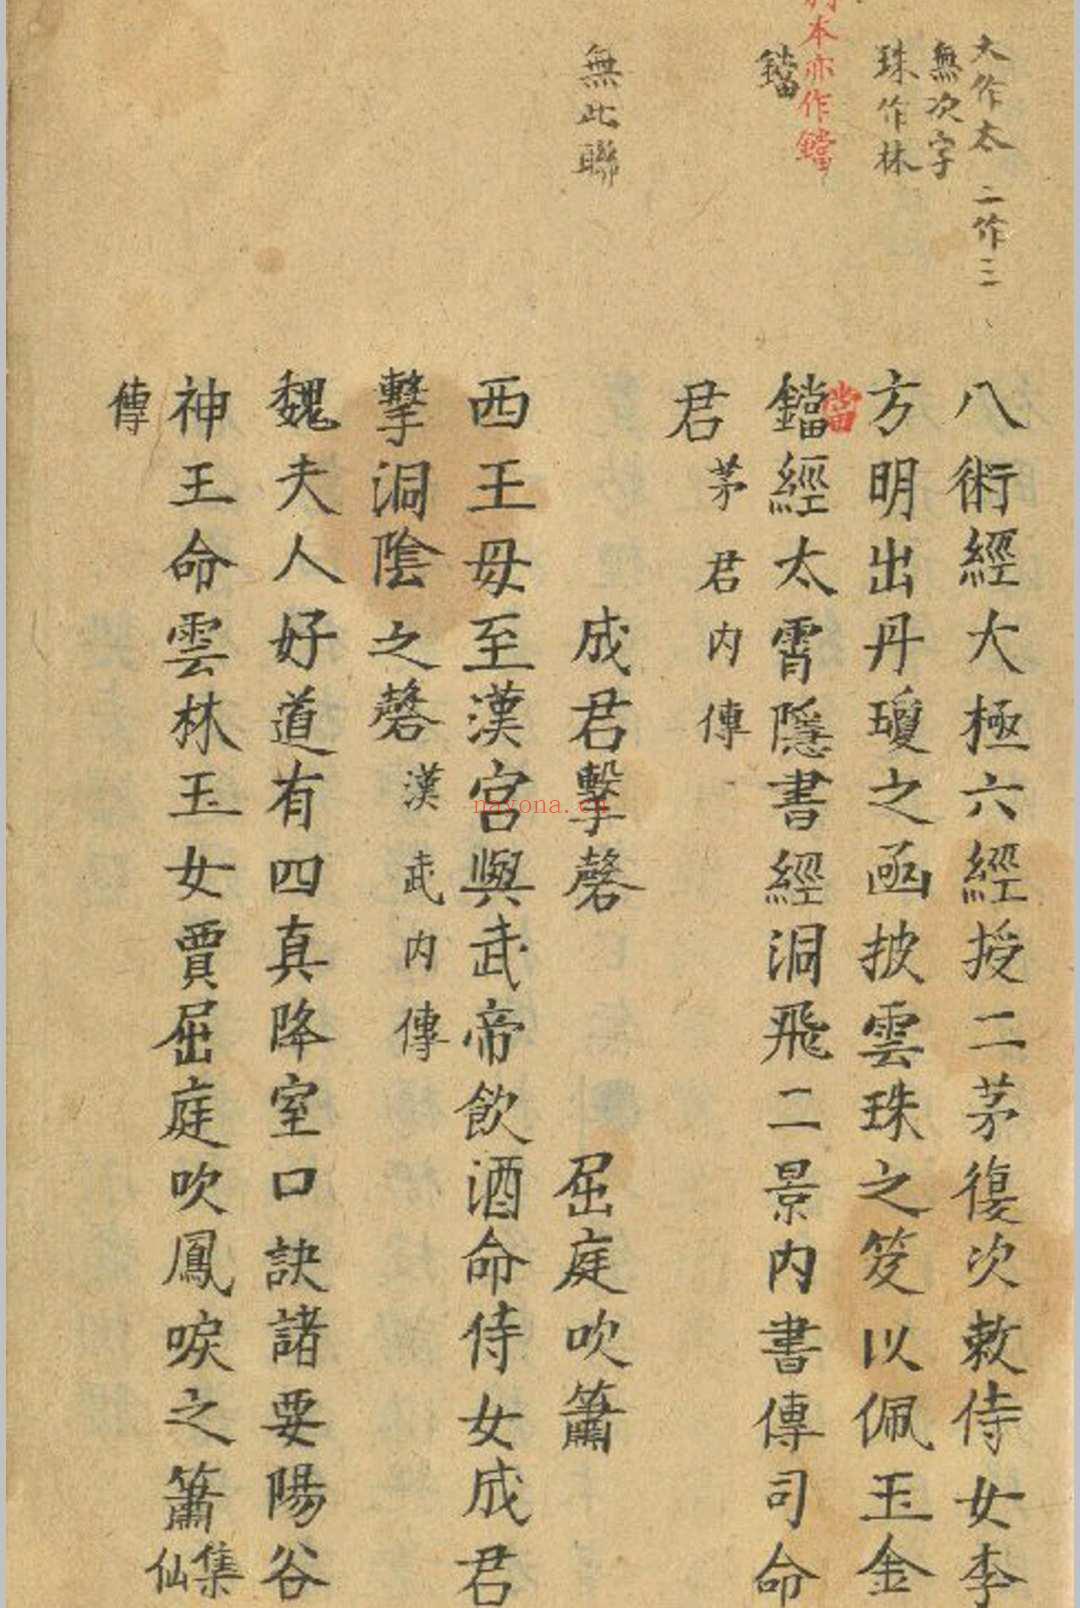 大作太 二作三
無次字
珠作林
本亦作鐺
鐺
無此聯
八術經大極六經授二茅復次敕侍女李
方明出丹瓊之函披雲珠之笈以佩玉金
鐺經太霄隱書經洞飛二景內書傳司命
當
君 茅君內傳
成君擊磬 屈庭吹簫
西王母至漢宮與武帝飲酒命侍女成君
擊洞陰之磬 漢武內傳
魏夫人好道有四真降室口訣諸要陽谷
神王命雲林玉女賈屈庭吹鳳唳之簫 集仙
傳
nayona.cn